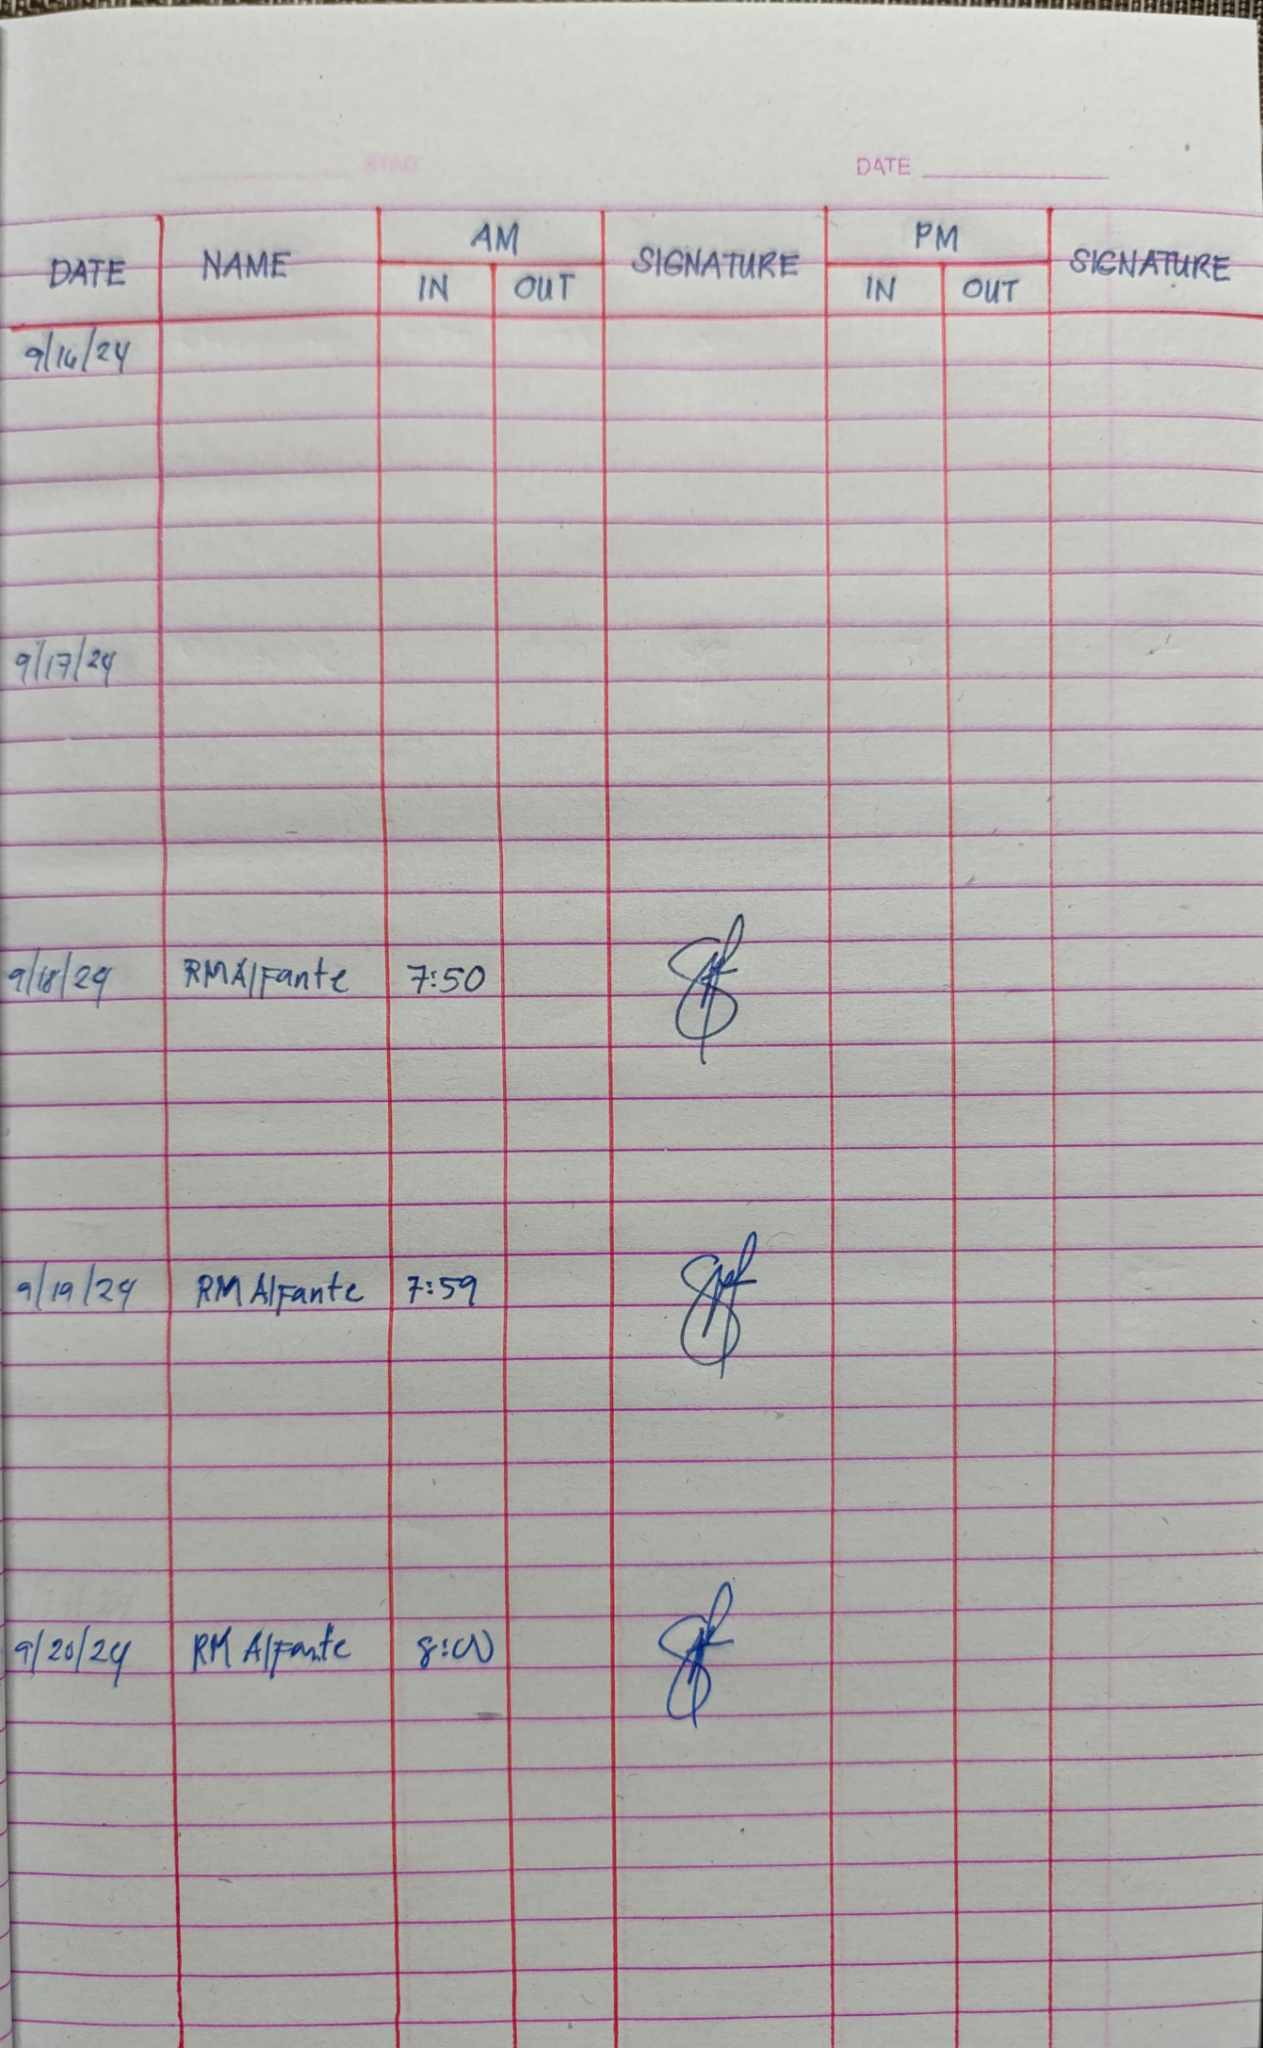 DATE
DATE NAME AM SIGNATURE PM SIGNATURE
IN OUT IN OUT
9/16/24
9/17/24
9/18/24 RMAlfante 7:50
9/19/24 RM Alfante 7:59
9/20/24 RM Alfante 8:00